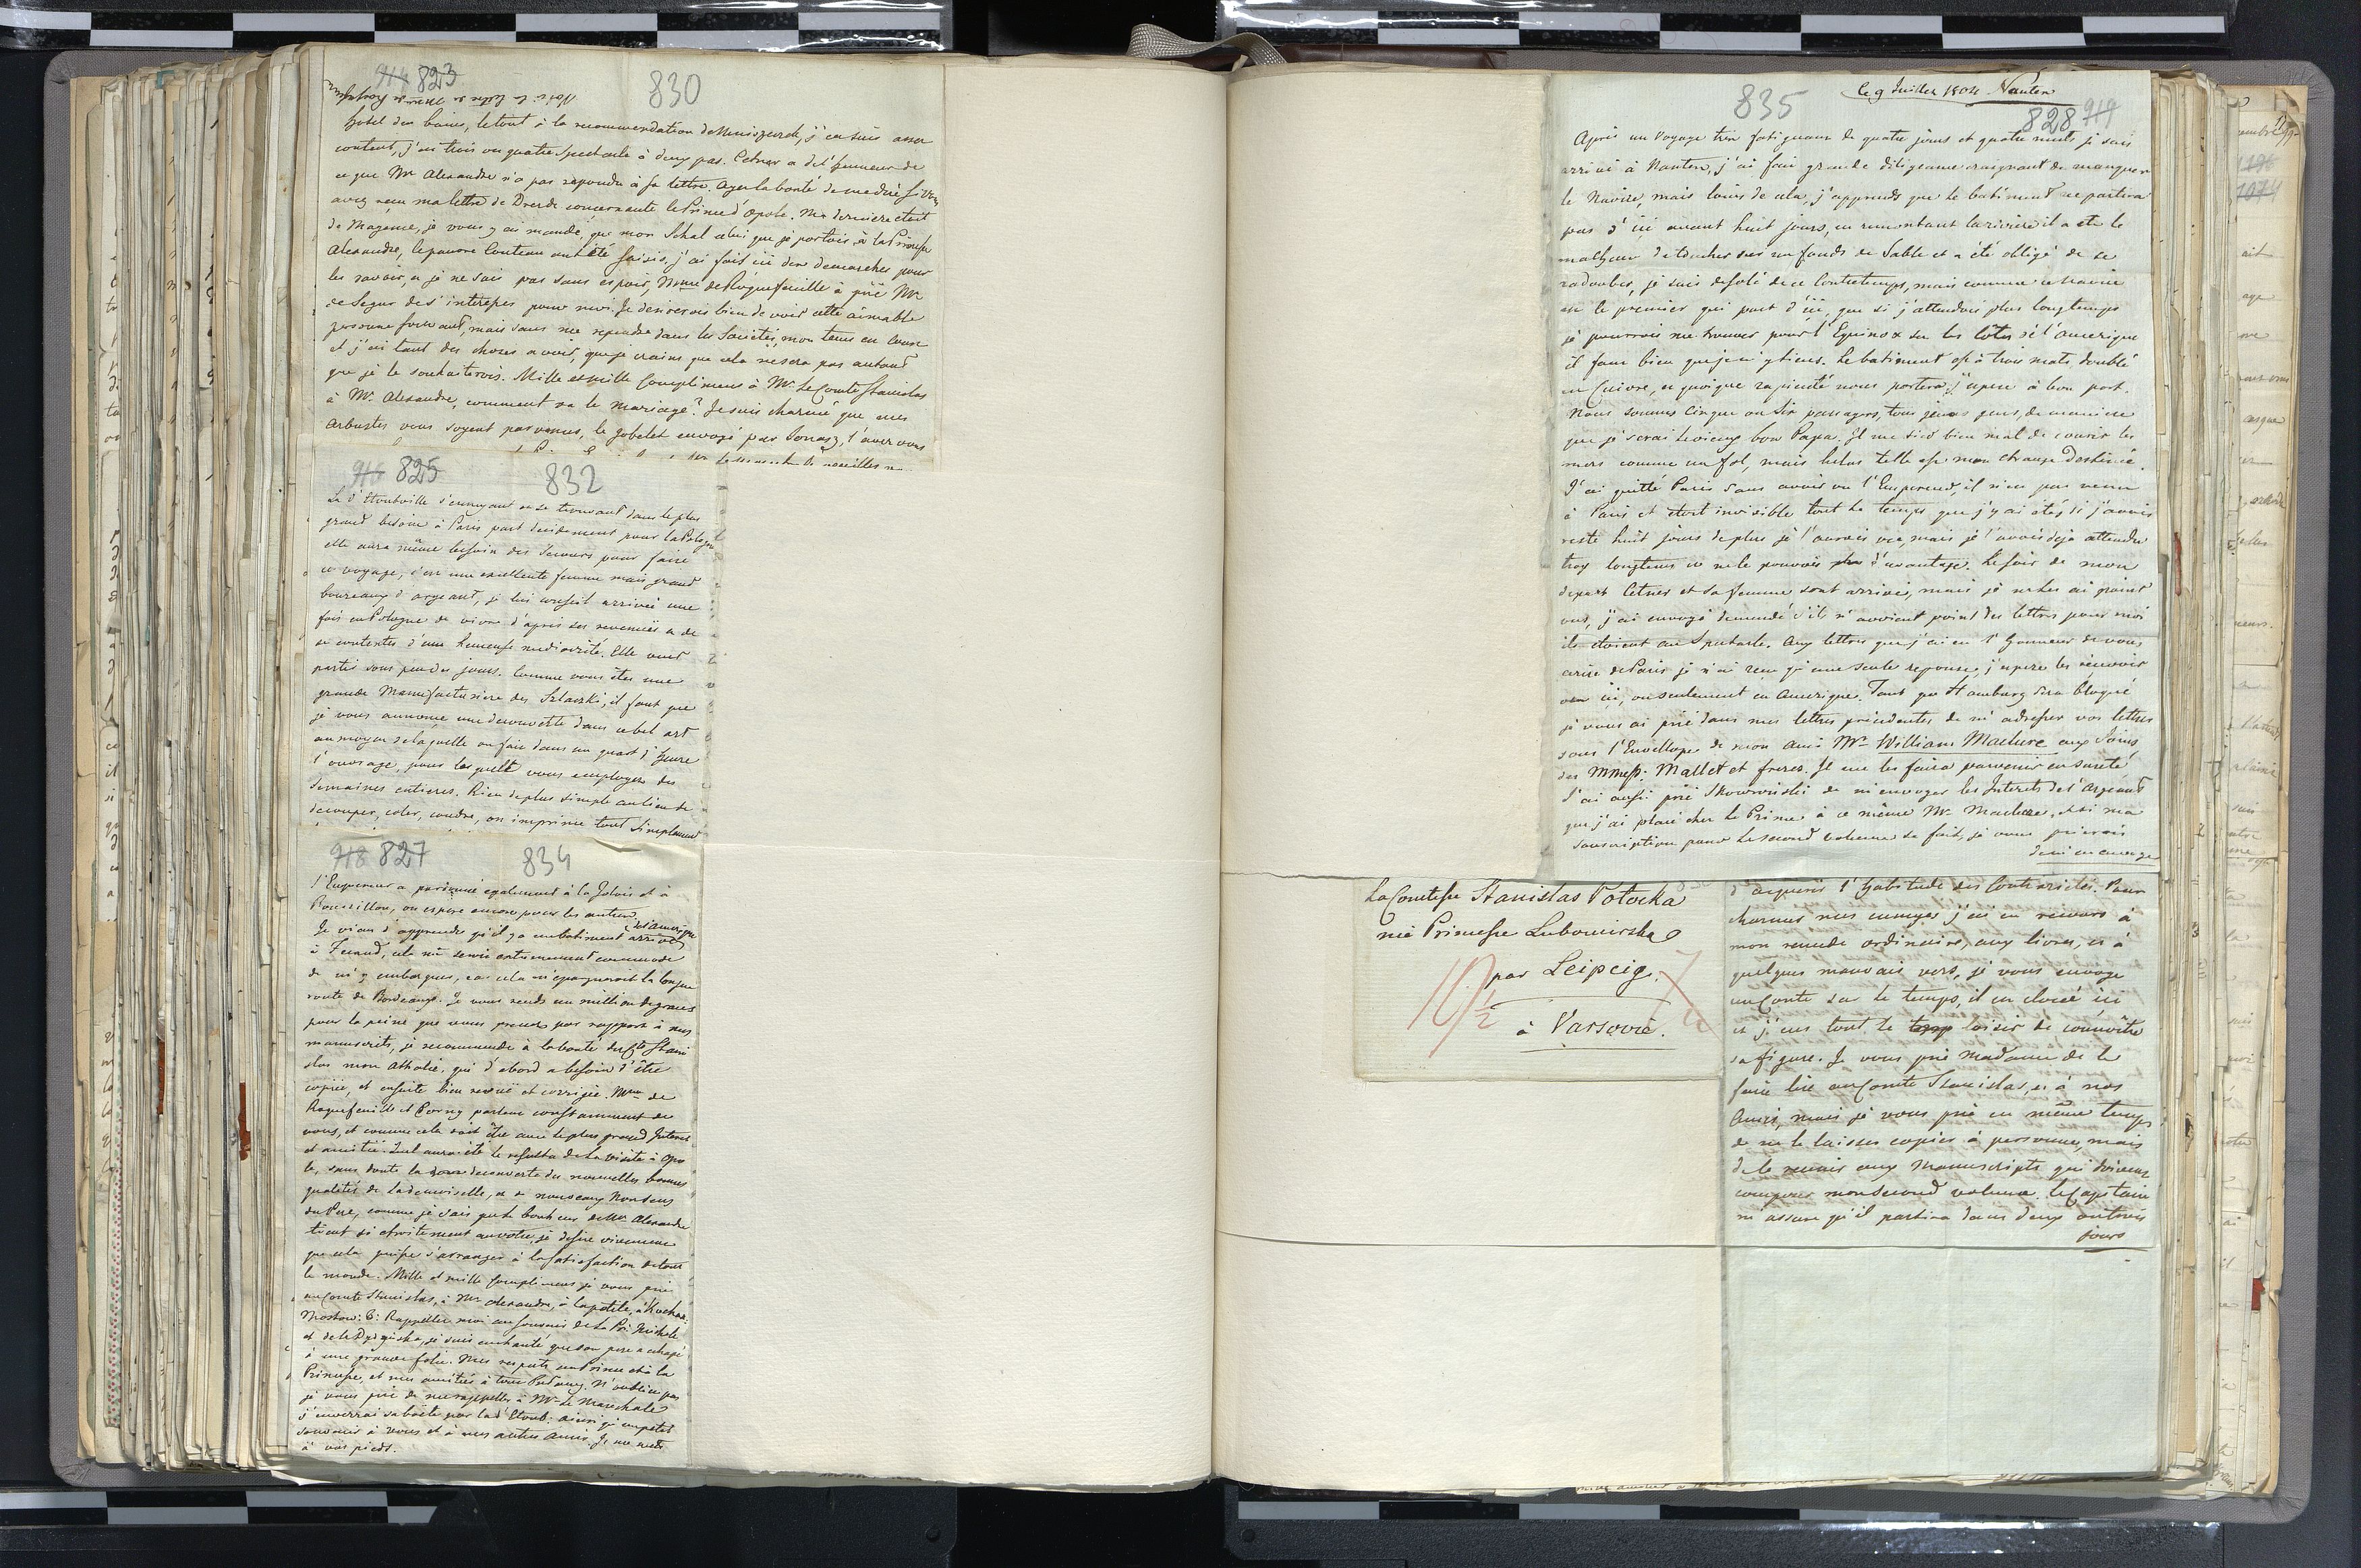 914 823
830
hotel des bains, le tout à la recommendation de Kniaziewicz, j'en suis assez
content, j'ai trois ou quatre Spectacle à deux pas. Cetner a de l'humeur de
ce que Mr Alexandre n'a pas repondu à sa lettre. Ayez la bonté de me dire si vous
avez recu ma lettre de Dresde concernante le Prince d'Opole. Ma derniere etoit
de Mayence, je vous y ai mandé, que mon Schal celui que je portois à la Princesse
Alexandre, le pauvre Couteau ont été saisis, j'ai fait ici des demarches pour
les ravoir, et je ne suis pas sans espoir, Mme de Roquefeuille à prié Mr
de Segur de s'interesser pour moi. Je desirerois bien de voir cette aimable
personne souvent, mais sans me repandre dans les Societés, mon tems est court
et j'ai tant des choses a voir, que je crains que cela ne sera pas autant
que je le souhaiterois. Mille et mille Complimens à Mr. Le Comte Stanislas
à Mr. Alexandre, comment va le mariage? Je suis charmé que mes
Arbustes vous soyent parvenus, le gobelet envoyé par Jonasz, l'avez vous
916 825
832
La d'Houtville s'ennuyant et se trouvant dans le plus
grand besoin à Paris part decidement pour la Pologne
elle aura même besoin des Secours pour faire
ce voyage, c'est une excellente femme mais grand
boureaux d'argeant, je lui conseil arrivée une
fois en Pologne de vivre d'apres ses revenues et de
se contenter d'une heureuse mediocrité. Elle veut
partir sous peu des jours. Comme vous êtes une
grande Manufacturiere des Szlaczki, il faut que
je vous annonce une decouverte dans ce bel art
au moyen de laquelle on fait dans un quart d'heure
l'ouvrage, pour lequelle vous employez des
Semaines entieres. Rien de plus simple au lieu de
decouper, coler, coudre, on imprime tout simplement
918 827
834
l'Empereur a pardonné egalement à la Jolais et à
Roussillon, on espere encore pour les autres.
Je viens d'apprendre qu'il y a un batiment de l'Amerique arrivé
à Fecand, cela me seroit extremement commode
de m'y embarquer, car cela m'epargneroit la longue
route de Bordeaux. Je vous rends un million de graces
pour la peine que vous prenez par rapport à mes
manuscrits, je recommande à la bonté du Cte Stani
slas mon Athalie, qui d'abord a besoin d'être
copiée, et ensuite bien revuë et corrigée. Mme de
Roquefeuille et Corny parlent constamment de
vous, et comme cela doit être avec le plus grand Interet
et amitié. Quel aura été le resultat de la visite à Opo
le, sans doute la decouverte des nouvelles bonnes
qualités de la demoiselle, et de nouveaux Nonsens
du Pere, comme je sais que le bonheur de Mr. Alexandre
tient si etroitement au votre, je desire vivement
que cela puisse s'arranger à la satisfaction de tout
le monde. Mille et mille complimens je vous prie
au Comte Stanislas, à Mr Alexandre, à la petite, à Kochan:
Mostow: &: Rappellez moi au souvenir de la Pri: Michele
et de la Dzizinska, je suis enchanté que son pere a echapé
à une grande folie. Mes respects au Prince et à la
Princesse, et mes amitiés à tout Pulawy. N'oubliez pas
je vous prie de me rappeller à Mr. le Marechale
j'enverrai sa boëte par la d'Houtv: ainsi qu'un petit
souvenir à vous et à mes autres Amis. Je me mets
à vos pieds.
835
Ce 9 Juillet 1804 Nantes
828 919
Après un Voyage très fatiguant de quatre jours et quatre nuits je suis
arrivé à Nantes, j'ai fait grande diligeance craignant de manquer
le Navire, mais loins de cela, j'apprends que le batiment ne partira
pas d'ici avant huit jours, en remontant la riviere il a eté le
malheur de toucher sur un fonds de Sable et a été obligé de se
radouber, je suis desolé de ce Contretemps, mais comme ce Navire
est le premier qui part d'ici, que si j'attendois plus longtemps
je pourrois me trouver pour l'Equinoxe sur les Côtes de l'Amerique
il faut bien que je m'y tiens. Le batiment est à trois mats doublé
en Cuivre, et quoique rapiecété nous portera j'espere à bon port.
Nous sommes Cinque ou Six passagers, tous jeunes gens, de maniere
que je serai le vieux bon Papa. Il me sied bien mal de courir les
mers comme un fol, mais helas telle est mon etrange Destinée.
J'ai quitté Paris sans avoir vu l'Empereur, il n'est pas venu
à Paris et etoit invisible tout le temps que j'y ai été, si j'aurois
resté huit jours de plus je l'aurois vu, mais je l'avois deja attendu
trop longtems et ne le pouvois plus d'avantage. Le soir de mon
depart Cetner et sa femme sont arrivés, mais je ne les ai point
vus, j'ai envoyé demander s'ils n'avoient point des lettres pour moi
ils etoient au Spectacle. Aux lettres que j'ai eu l'honneur de vous
ecrire de Paris je n'ai recu qu'une seule reponse, j'espere les recevoir
ou ici, ou seulement en Amerique. Tant que Hamburg sera bloqué
je vous ai prié dans mes lettres précedentes de m'adresser vos lettres
sous l'Envellope de mon ami Mr William Maclure aux Soins
des Mmess: Mallet et freres. Il me les faira parvenir en sureté
J'ai aussi prié Skowronski de m'envoyer les Interets de l'Argeant
que j'ai placé chez le Prince à ce même Mr Maclure, et si ma
souscription pour le second volume se fait, je vous prierois
d'en envoyer
La Comtesse Stanislas Potocka
née Princesse Lubomirska
par Leipcig.
à Varsovie.
d'acquerir l'habitude des Contrarietés. Pour
charmer mes ennuyes j'ai eu recours à
mon remede ordinaire, aux livres, et à
quelques mauvais vers, je vous envoye
un Conte sur le temps, il en cloué ici
et j'eus tout le temp loisir de connoitre
sa figure. Je vous prie Madame de le
faire lire au Comte Stanislas, et à nos
Amis, mais je vous prie en même temps
de ne le laisser copier à personne, mais
de le reunir aux Manuscripts qui doivent
composer mon second volume. Le Capitain
m'assure qu'il partira dans deux ou trois
jours